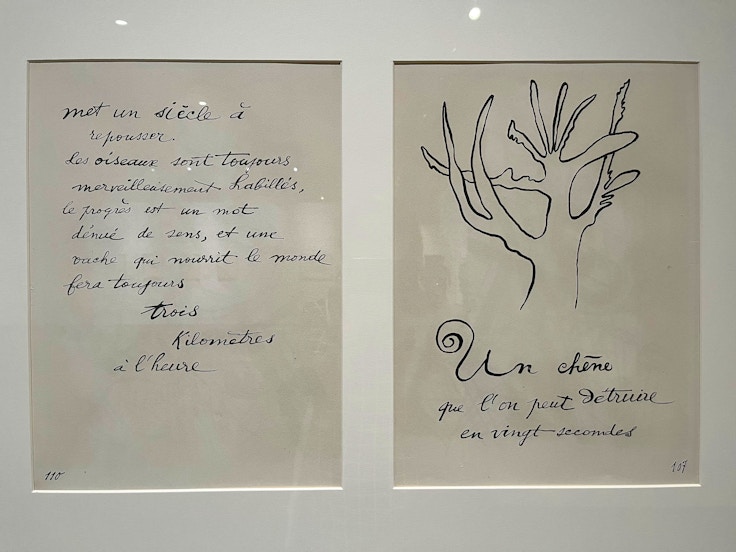 met un siècle à
repousser.
Les oiseaux sont toujours
merveilleusement habillés,
le progrès est un mot
dénué de sens, et une
vache qui nourrit le monde
fera toujours
trois
Kilomètres
à l'heure
110
Un chêne
que l'on peut détruire
en vingt secondes
107